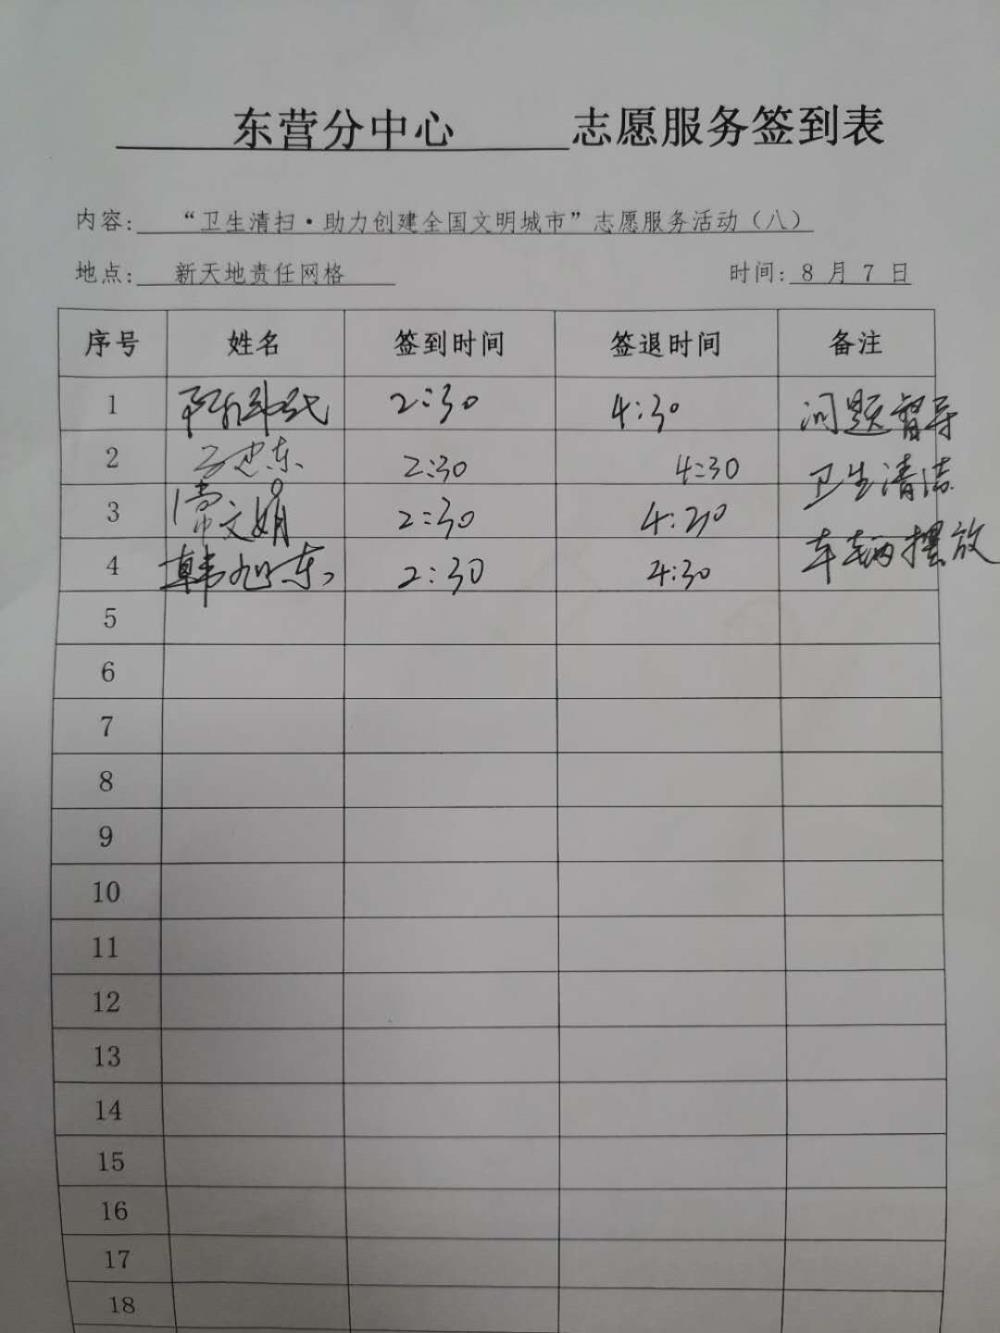 东营分中心 志愿服务签到表
内容: “卫生清扫·助力创建全国文明城市”志愿服务活动（八）
地点: 新天地责任网格 时间: 8 月 7 日
序号 姓名 签到时间 签退时间 备注
1 2:30 4:30 问题督导
2 2:30 4:30 卫生清洁
3 常文娟 2:30 4:30
4 韩旭东 2:30 4:30 车辆摆放
5
6
7
8
9
10
11
12
13
14
15
16
17
18